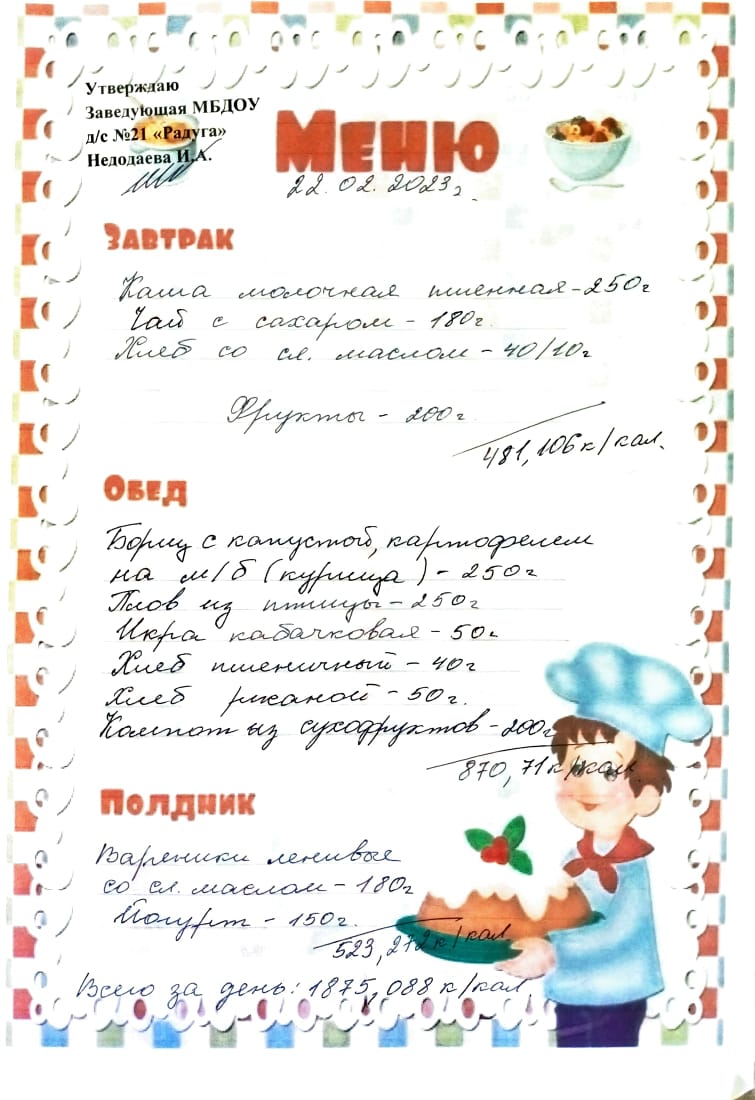 Утверждаю
Заведующая МБДОУ
д/с №21 «Радуга»
Недодаева И.А.
Меню
22.02.2023г.
Завтрак
Каша молочная пшенная - 250г
Чай с сахаром - 180г.
Хлеб со сл. маслом - 40/10г
Фрукты - 200г.
481,106к/кал.
Обед
Борщ с капустой, картофелем
на м/б (курица) - 250г
Плов из птицы - 250г
Икра кабачковая - 50г
Хлеб пшеничный - 40г
Хлеб ржаной - 50г.
Компот из сухофруктов - 200г
870,71к/кал.
Полдник
Вареники ленивые
со сл. маслом - 180г
Йогурт - 150г.
523,272к/кал.
Всего за день: 1875,088к/кал.